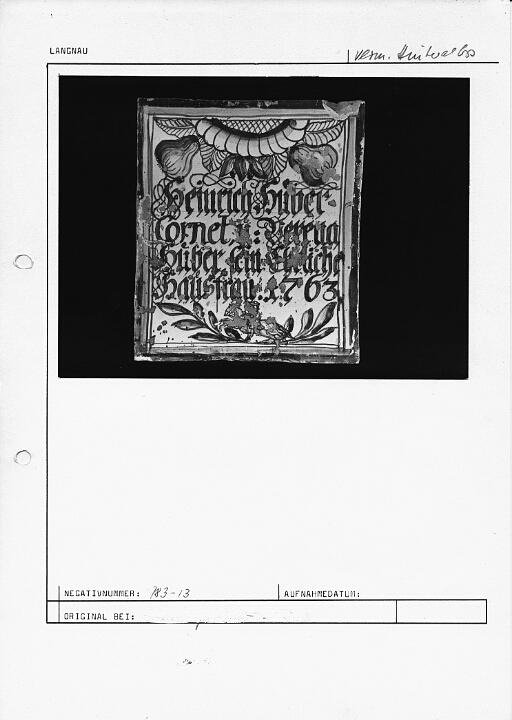 LANGNAU
Heinrich Huber
Cornet, u: Verena
Huber sein Ehliche
Hausfrau: 1763
NEGATIVNUMMER: 783-13
AUFNAHMEDATUM:
ORIGINAL BEI: